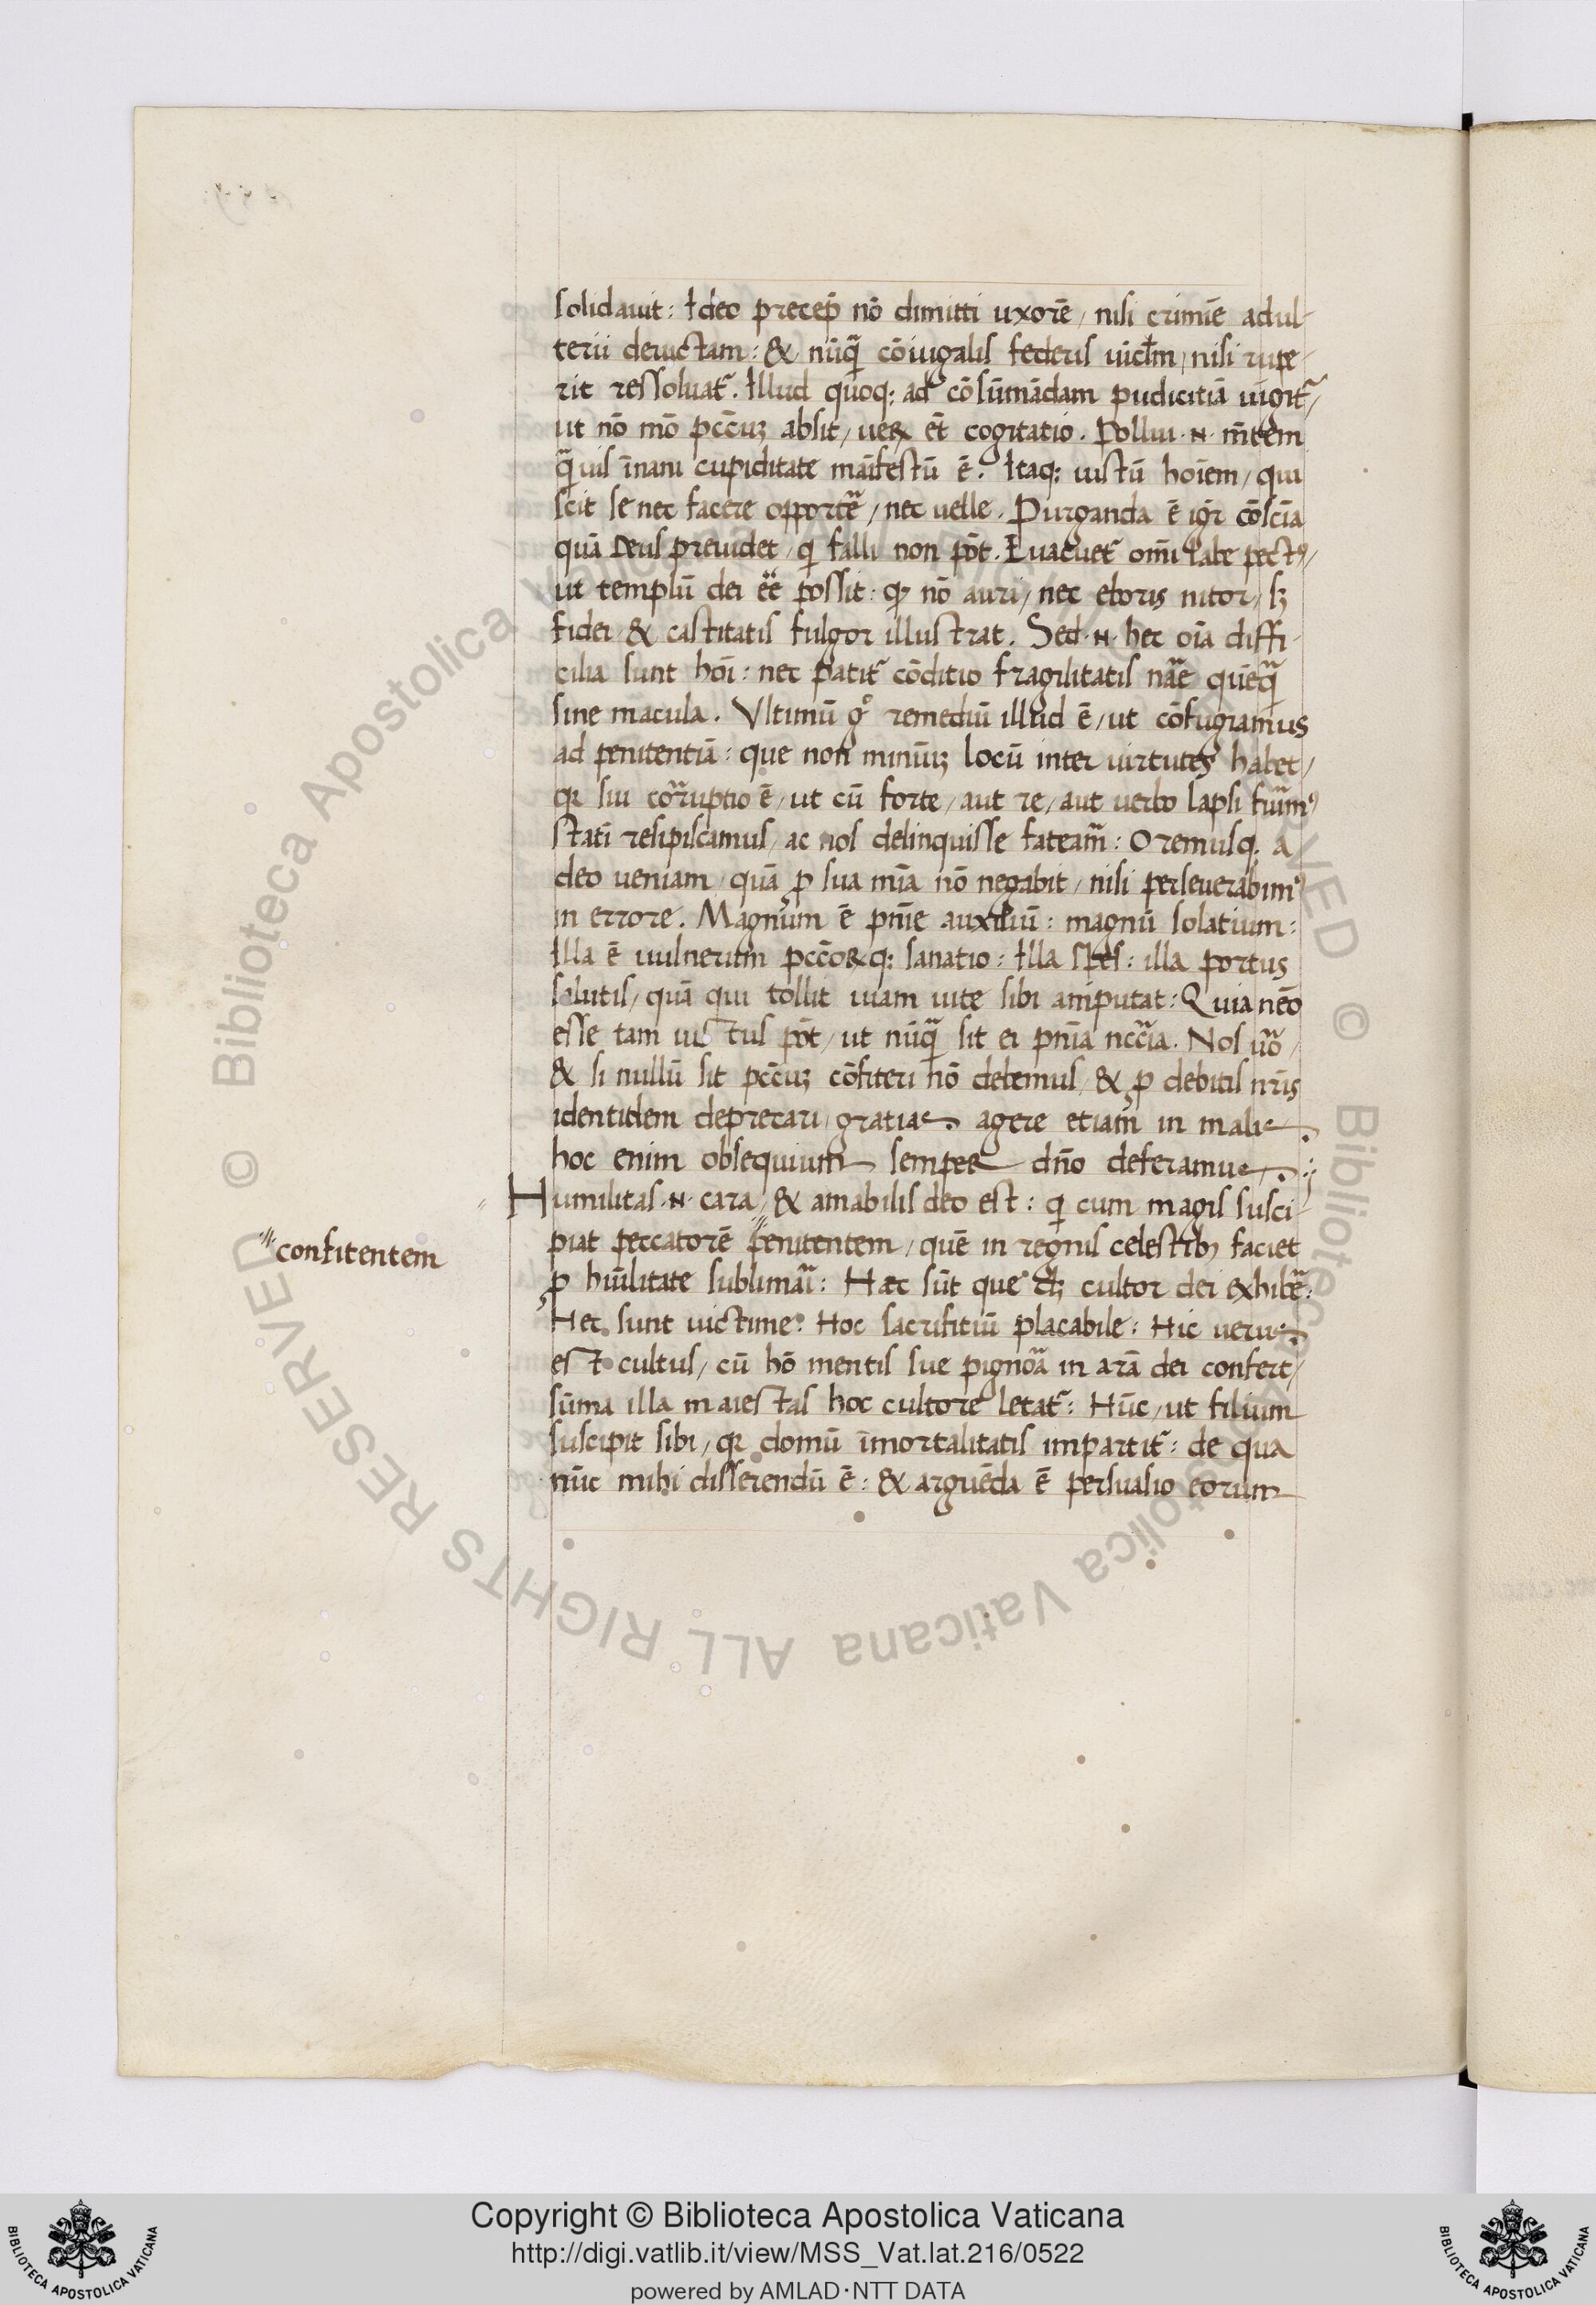 solidauit: Ideo precep̄ nō dimitti uxorē / nisi crimīe adul-
terii deuictam: & nūq̄ cōiugalis federis uīcl̄m / nisi rupe-
rit ressoluat᷑. Illud quoq; ad cōsūmādam pudicitiā uigit᷑ /
ut nō mō pccūꝫ absit / ueꝝ et̄ cogitatio. Pollui ·N· m̄tem
q̄uis īnani cupiditate māifestū ē. Itaq; iustū hoīem / qui
scit se nec facere opporte᷑ / nec uelle. Purganda ē igr̄ cōscīa
quā Deus preuidet / qi falli non pōt. Euacuet᷑ omī labe pectꝰ /
ut templū dei eē possit: qꝫ nō auri / nec eboris nitor / sꝫ
fidei & castitatis fulgor illustrat. Sed ·N· hec oīa diffi-
cilia sunt hoī: nec patit᷑ cōditio fragilitatis nāe quēq̄
sine macula. Vltimū gͦ remediū illud ē / ut cōfugiamus
ad penitentiā: que non minūꝫ locū inter uirtutes habet /
qꝛ sui corruptio ē / ut cū forte / aut re / aut uerbo lapsi fuīmꝰ
statī resipiscamus / ac nos delinquisse fateam᷑: Oremusq; a
deo ueniam / quā ꝓ sua mīa nō negabit / nisi perseuerabimꝰ
in errore. Magnum ē pnīe auxiliū: magnū solatium:
Illa ē uulnerum pccōꝝq; sanatio: Illa spes: illa portus
salutis / quā qui tollit uiam uite sibi amputat: Quia nēo
esse tam iustus pōt / ut nūq̄ sit ei pnīa nccīa. Nos uo᷑ /
& si nullū sit pccūꝫ cōfiteri nō debemus / & ꝓ debitis nr̄is
identidem deprecari / gratias agere etiam in malis.
hoc enim obsequium semper dn̄o deferamus.
Humilitas ·N· cara / & amabilis deo est: qi cum magis susci-
piat peccatorē penitentem / quē in regnis celestibꝫ faciet
confitentem
ꝓ hūilitate sublimāi: Haec sūt que dꝫ cultor dei exhibe᷑:
Hec sunt uictime: Hoc sacrifitiū placabile: Hic uerus
est cultus / cū hō mentis sue pignoa᷑ in arā dei confert /
sūma illa maiestas hoc cultore letat᷑: Hūc / ut filium
suscipit sibi / qꝛ domū īmortalitatis impartit᷑: de qua
nūc mihi disserendū ē: & arguēda ē persuasio eorum
Copyright © Biblioteca Apostolica Vaticana
http://digi.vatlib.it/view/MSS_Vat.lat.216/0522
powered by AMLAD · NTT DATA
BIBLIOTECA APOSTOLICA VATICANA
BIBLIOTECA APOSTOLICA VATICANA
© Biblioteca Apostolica Vaticana ALL RIGHTS RESERVED
© Biblioteca Apostolica Vaticana ALL RIGHTS RESERVED